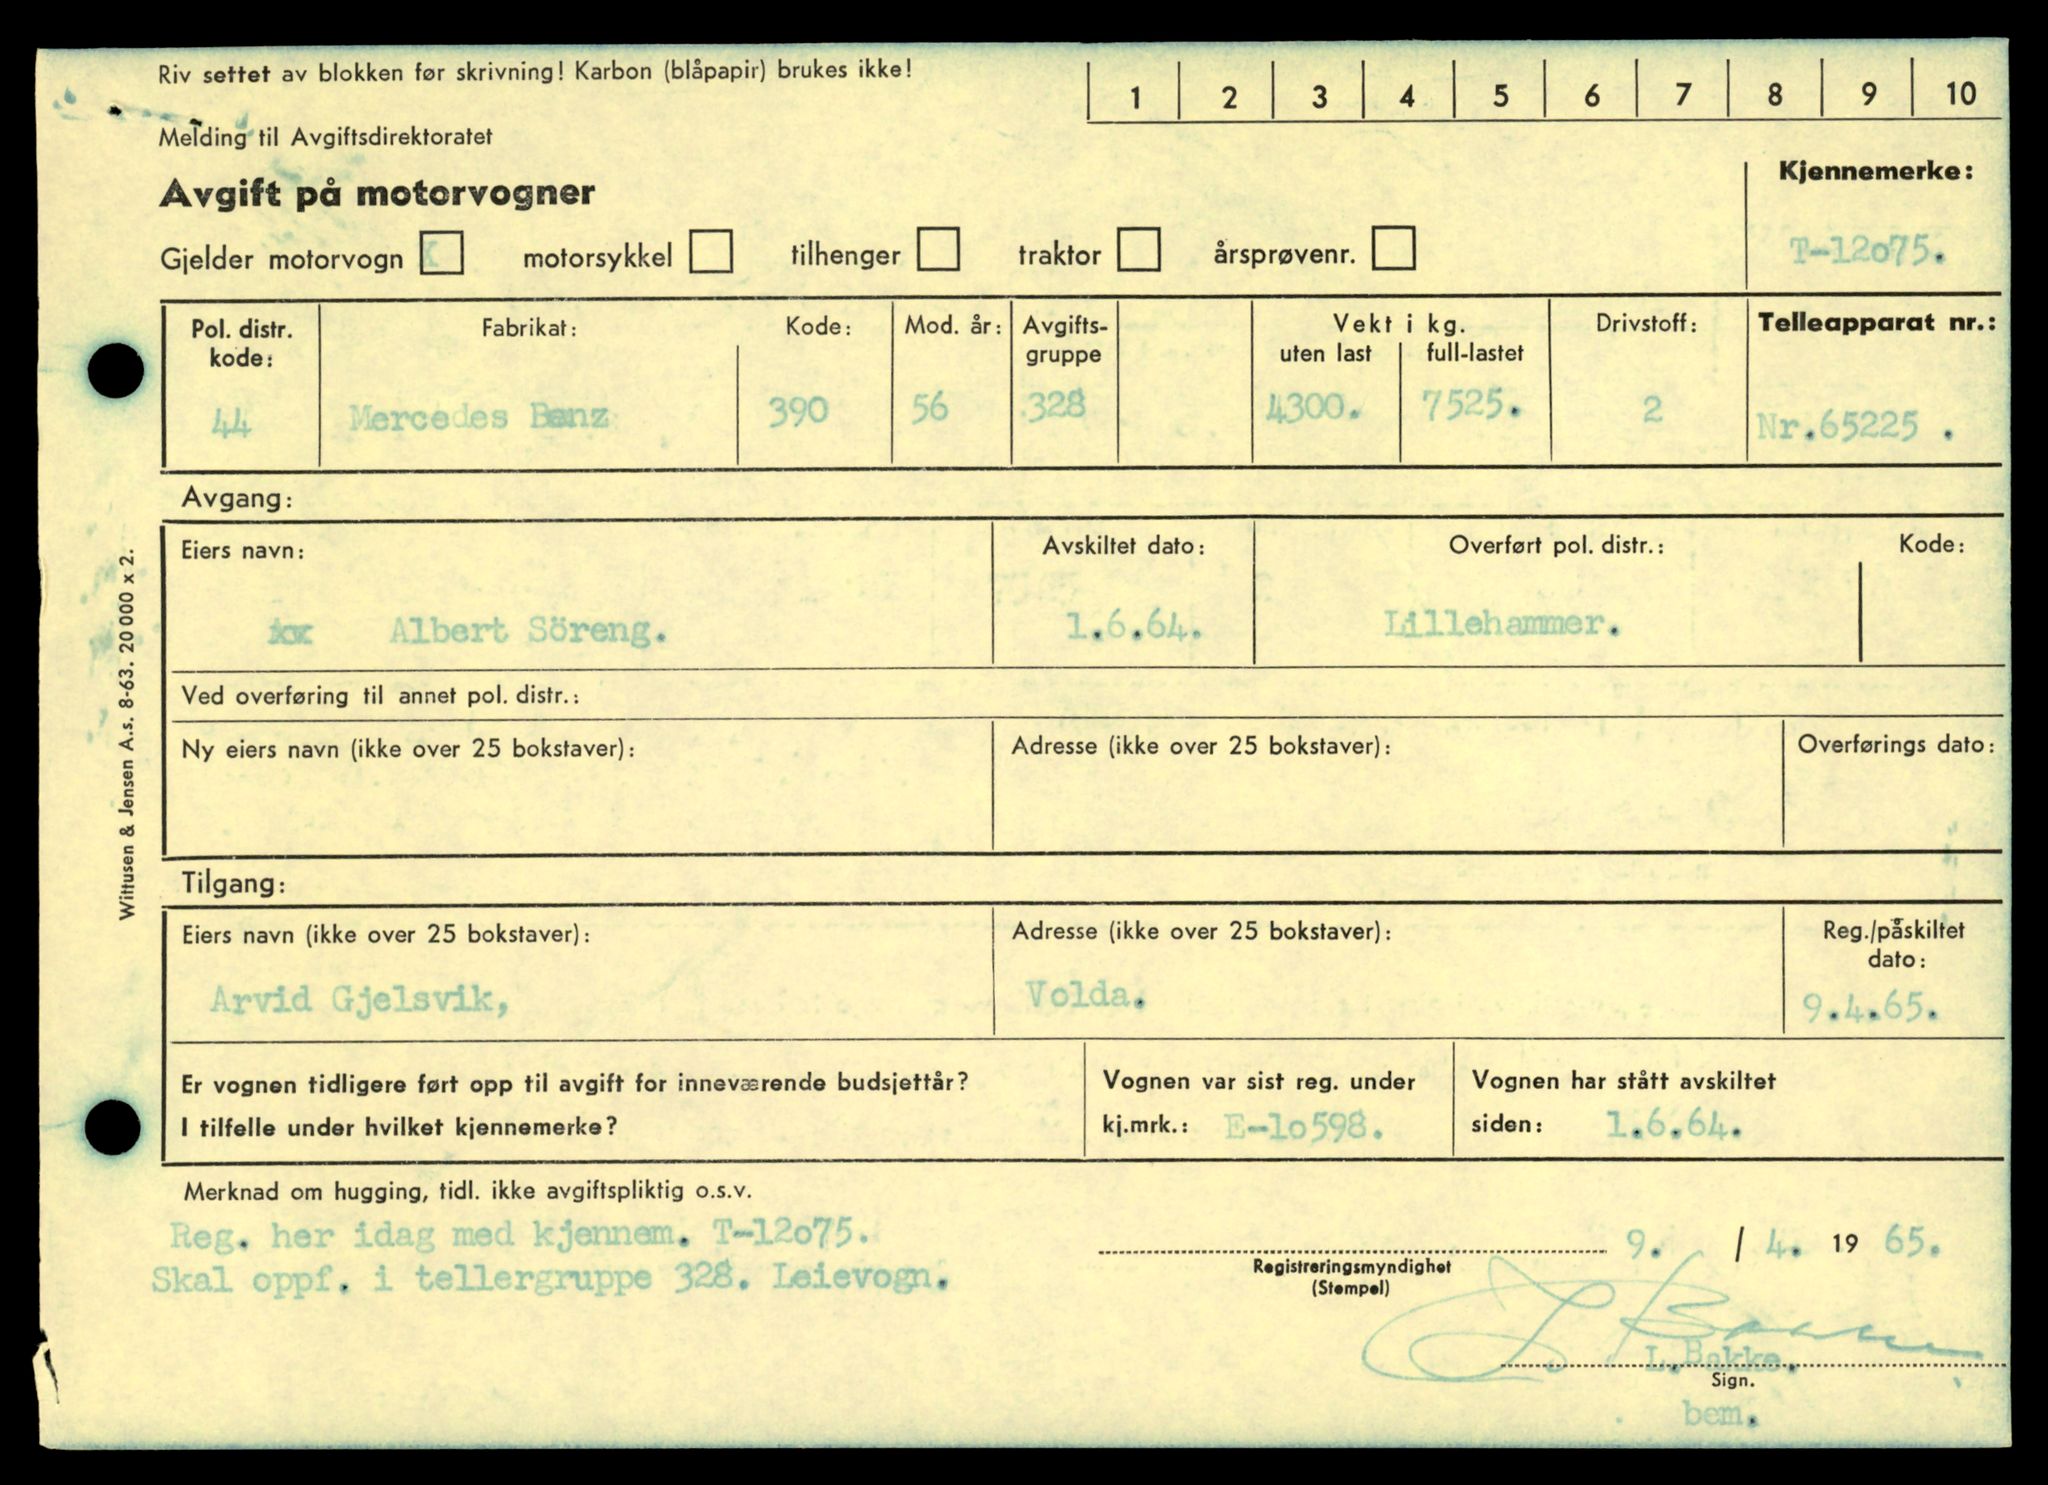 Riv settet av blokken før skrivning! Karbon (blåpapir) brukes ikke!
1 2 3 4 5 6 7 8 9 10
Melding til Avgiftsdirektoratet
Avgift på motorvogner
Kjennemerke:
Gjelder motorvogn X motorsykkel tilhenger traktor årsprøvenr.
T-12o75.
Pol. distr. kode: Fabrikat: Kode: Mod. år: Avgifts-gruppe Vekt i kg. uten last full-lastet Drivstoff: Telleapparat nr.:
44 Mercedes Benz 390 56 328 4300. 7525. 2 Nr.65225 .
Avgang:
Eiers navn: Avskiltet dato: Overført pol. distr.: Kode:
xx Albert Söreng. 1.6.64. Lillehammer.
Ved overføring til annet pol. distr.:
Ny eiers navn (ikke over 25 bokstaver): Adresse (ikke over 25 bokstaver): Overførings dato:
Tilgang:
Eiers navn (ikke over 25 bokstaver): Adresse (ikke over 25 bokstaver): Reg./påskiltet dato:
Arvid Gjelsvik, Volda. 9.4.65.
Er vognen tidligere ført opp til avgift for inneværende budsjettår? Vognen var sist reg. under Vognen har stått avskiltet
I tilfelle under hvilket kjennemerke? kj.mrk.: E-1o598. siden: 1.6.64.
Merknad om hugging, tidl. ikke avgiftspliktig o.s.v.
Reg. her idag med kjennem. T-12o75.
9. / 4. 19 65.
Skal oppf. i tellergruppe 328. Leievogn.
Registreringsmyndighet
(Stempel)
L Bakke
L.Bakke.
Sign.
bem.
Wittusen & Jensen A.s. 8-63. 20 000 x 2.